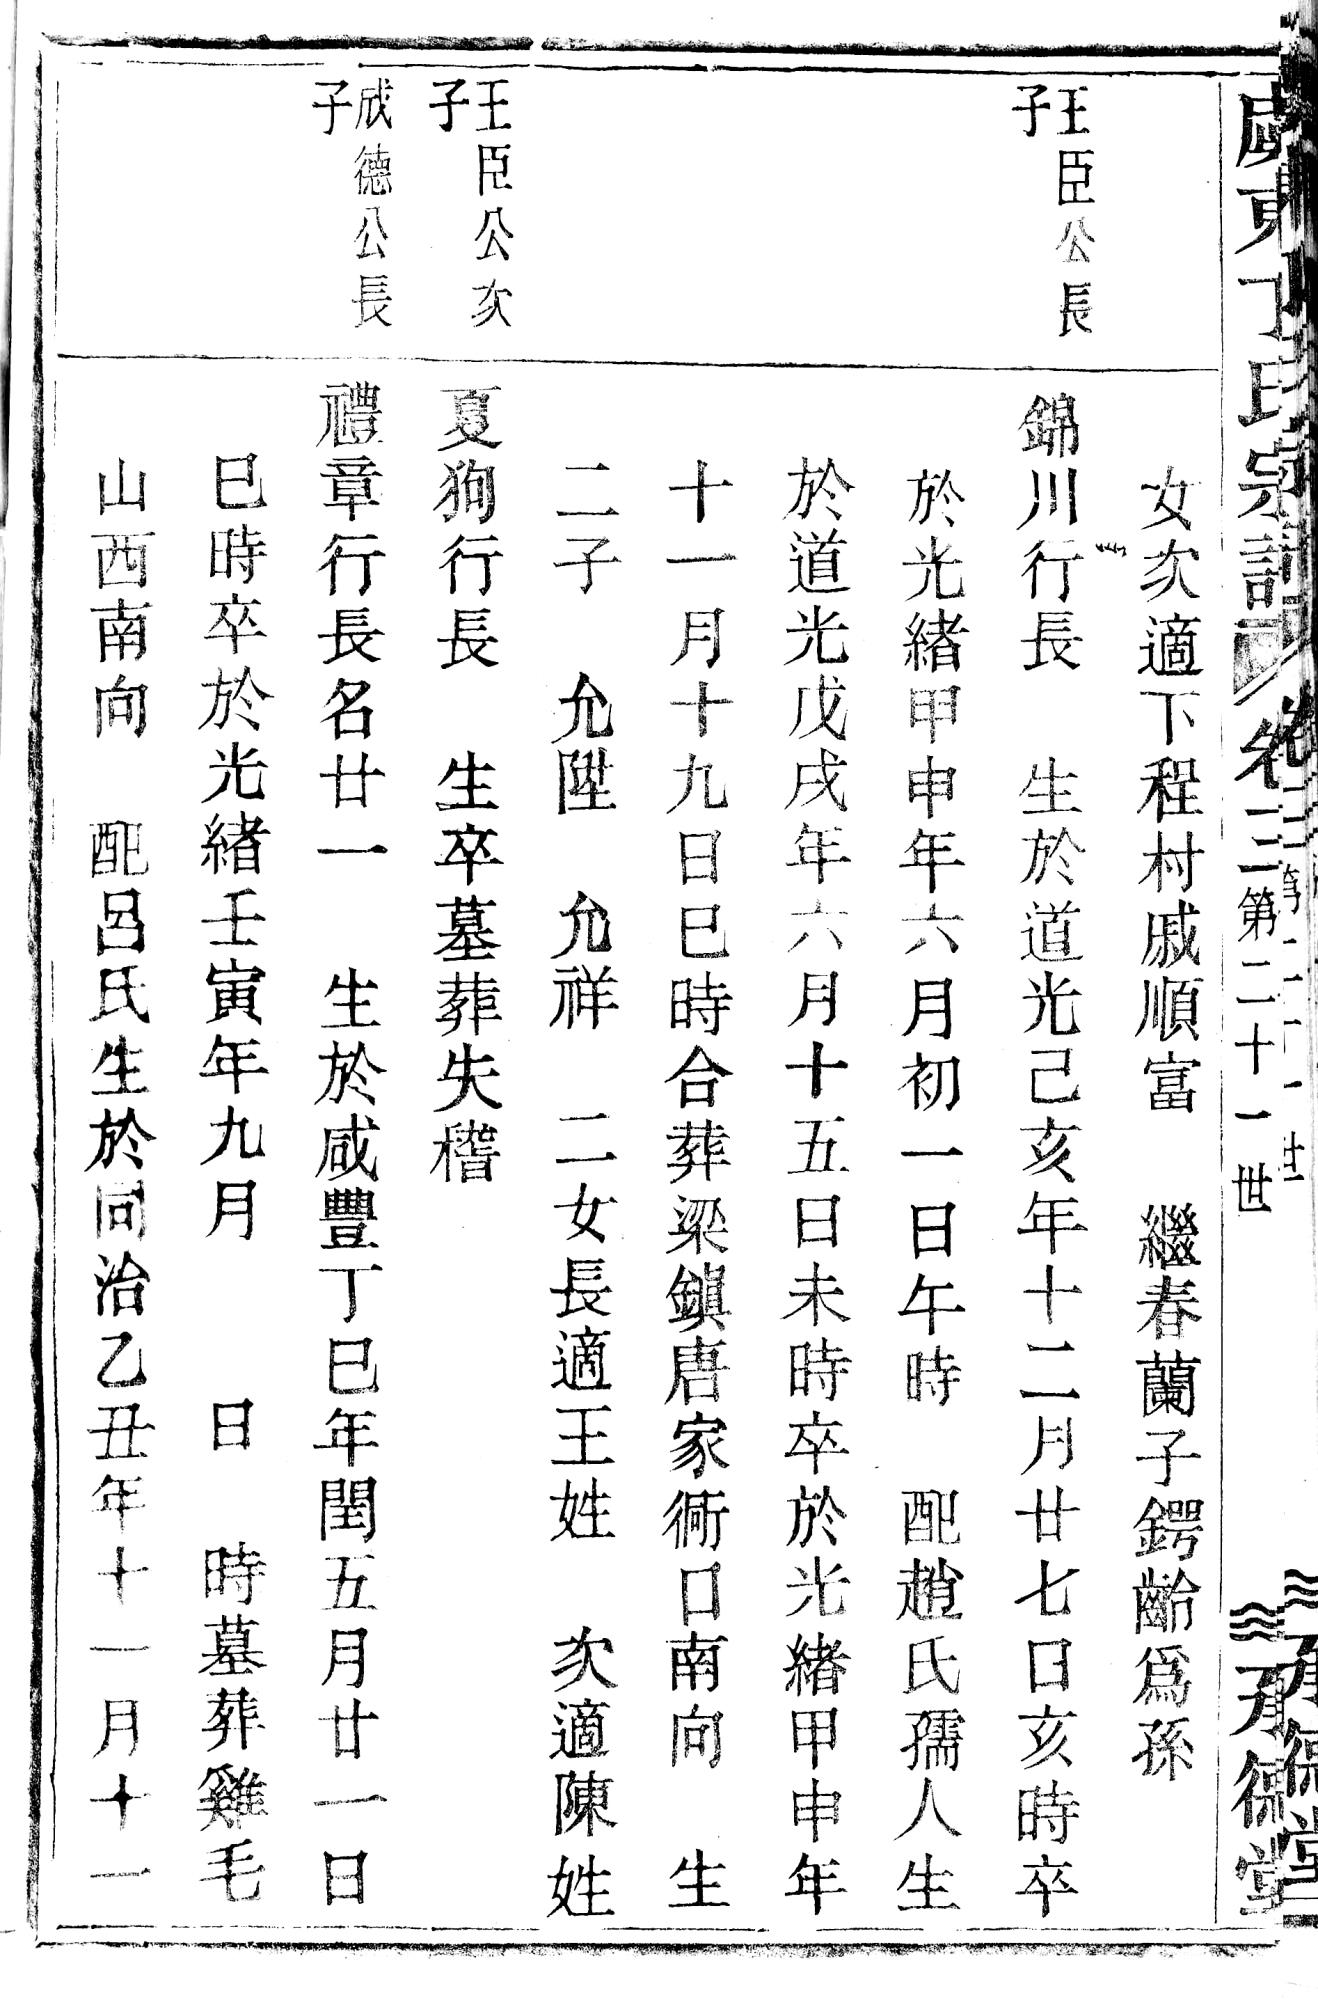 虞東丁氏宗譜 卷三 第二十一世 承德堂
女次適下程村戚順富 繼春蘭子鍔齡爲孫
王臣公長子
錦川行長 生於道光己亥年十二月廿七日亥時卒
於光緒甲申年六月初一日午時 配趙氏孺人生
於道光戊戌年六月十五日未時卒於光緒甲申年
十一月十九日巳時合葬梁鎭唐家衕口南向 生
二子 允陞 允祥 二女長適王姓 次適陳姓
王臣公次子
夏狗行長 生卒墓葬失稽
成德公長子
禮章行長名廿一 生於咸豐丁巳年閏五月廿一日
巳時卒於光緒壬寅年九月 日 時墓葬雞毛
山西南向 配呂氏生於同治乙丑年十一月十一